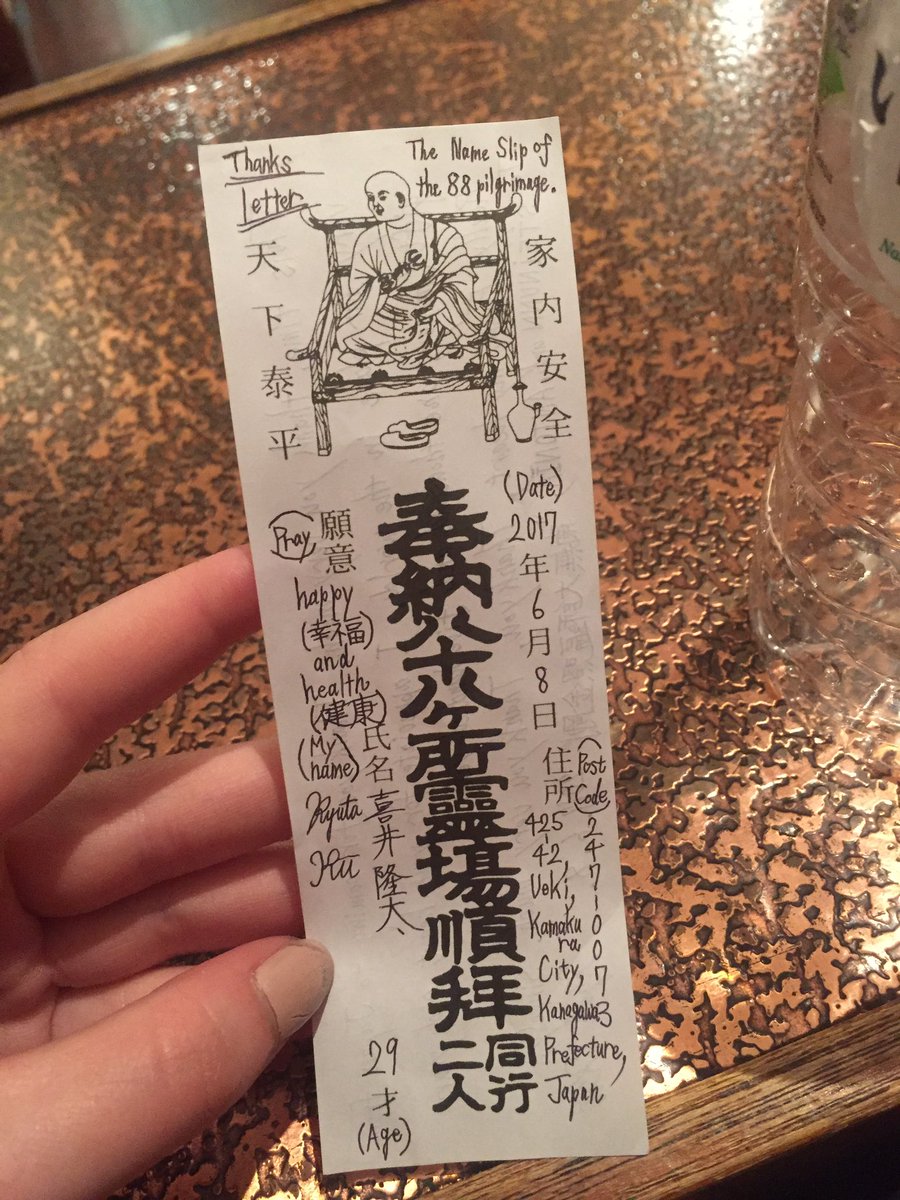 Thanks
Letter
The Name Slip of
the 88 pilgrimage.
家内安全
天下泰平
(Date)
2017年6月8日
住所
(Post
Code)
247-0073
425-
42,
Ueki,
Kamaku
ra
City,
Kanagawa
Prefecture,
Japan
奉納八十八ヶ所霊場順拝
同行
二人
(Pray)
願意
happy
(幸福)
and
health
(健康)
(My
name)
氏名
喜井隆太
Ryuta
Kii
29
才
(Age)
し